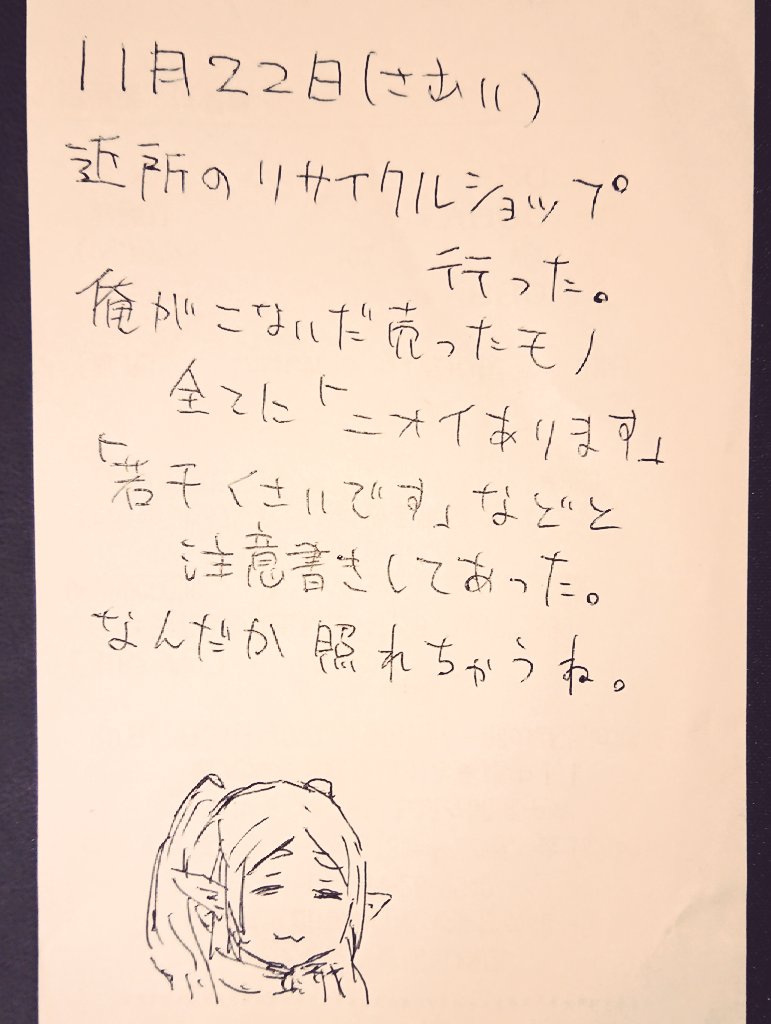 11月22日(さむい)
近所のリサイクルショップ
行った。
俺がこないだ売ったモノ
全てに「ニオイあります」
「若干くさいです」などと
注意書きしてあった。
なんだか照れちゃうね。